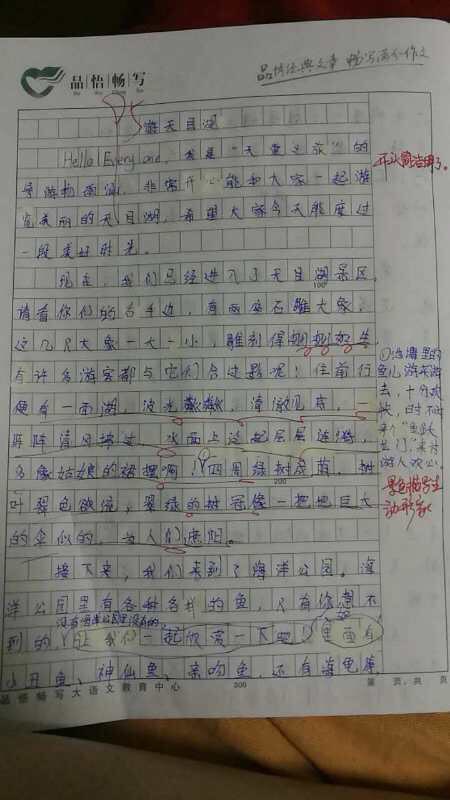 品悟畅写
品悟经典文章 畅写满分作文
游天目湖
Hello Everyone, 我是"天童之旅"的
导游 非常开心能和大家一起游
览美丽的天目湖,希望大家今天能度过
一段美好时光。
现在,我们已经进入了天目湖景区,
请看你们的右手边,有两座石雕大象,
这几只大象一大一小,雕刻得栩栩如生
有许多游客都与它们合过影呢!往前行
便有一面湖,波光粼粼,清澈见底,一
阵阵清风拂过,水面上泛起层层涟漪,
多像姑娘的裙摆啊!四周绿树成荫,树
叶翠色欲流,翠绿的树冠像一把把巨大
的伞似的,为人们遮阳。
接下来,我们来到了海洋公园。海
洋公园里有各种各样的鱼,只有你想不
到的,没有海洋公园里没有的,让我们一起欣赏一下吧!里面有
小丑鱼、神仙鱼、亲吻鱼,还有海龟
开头简洁明了。
①池塘里的
鱼儿游来游
去,十分欢
快,时不时
来个"鱼跃
龙门",来为
游人戏水。
景色描写生
动形象
100
200
300
品悟畅写大语文教育中心
第 页,共 页